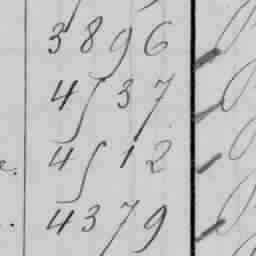 3896
4537
4512
4379